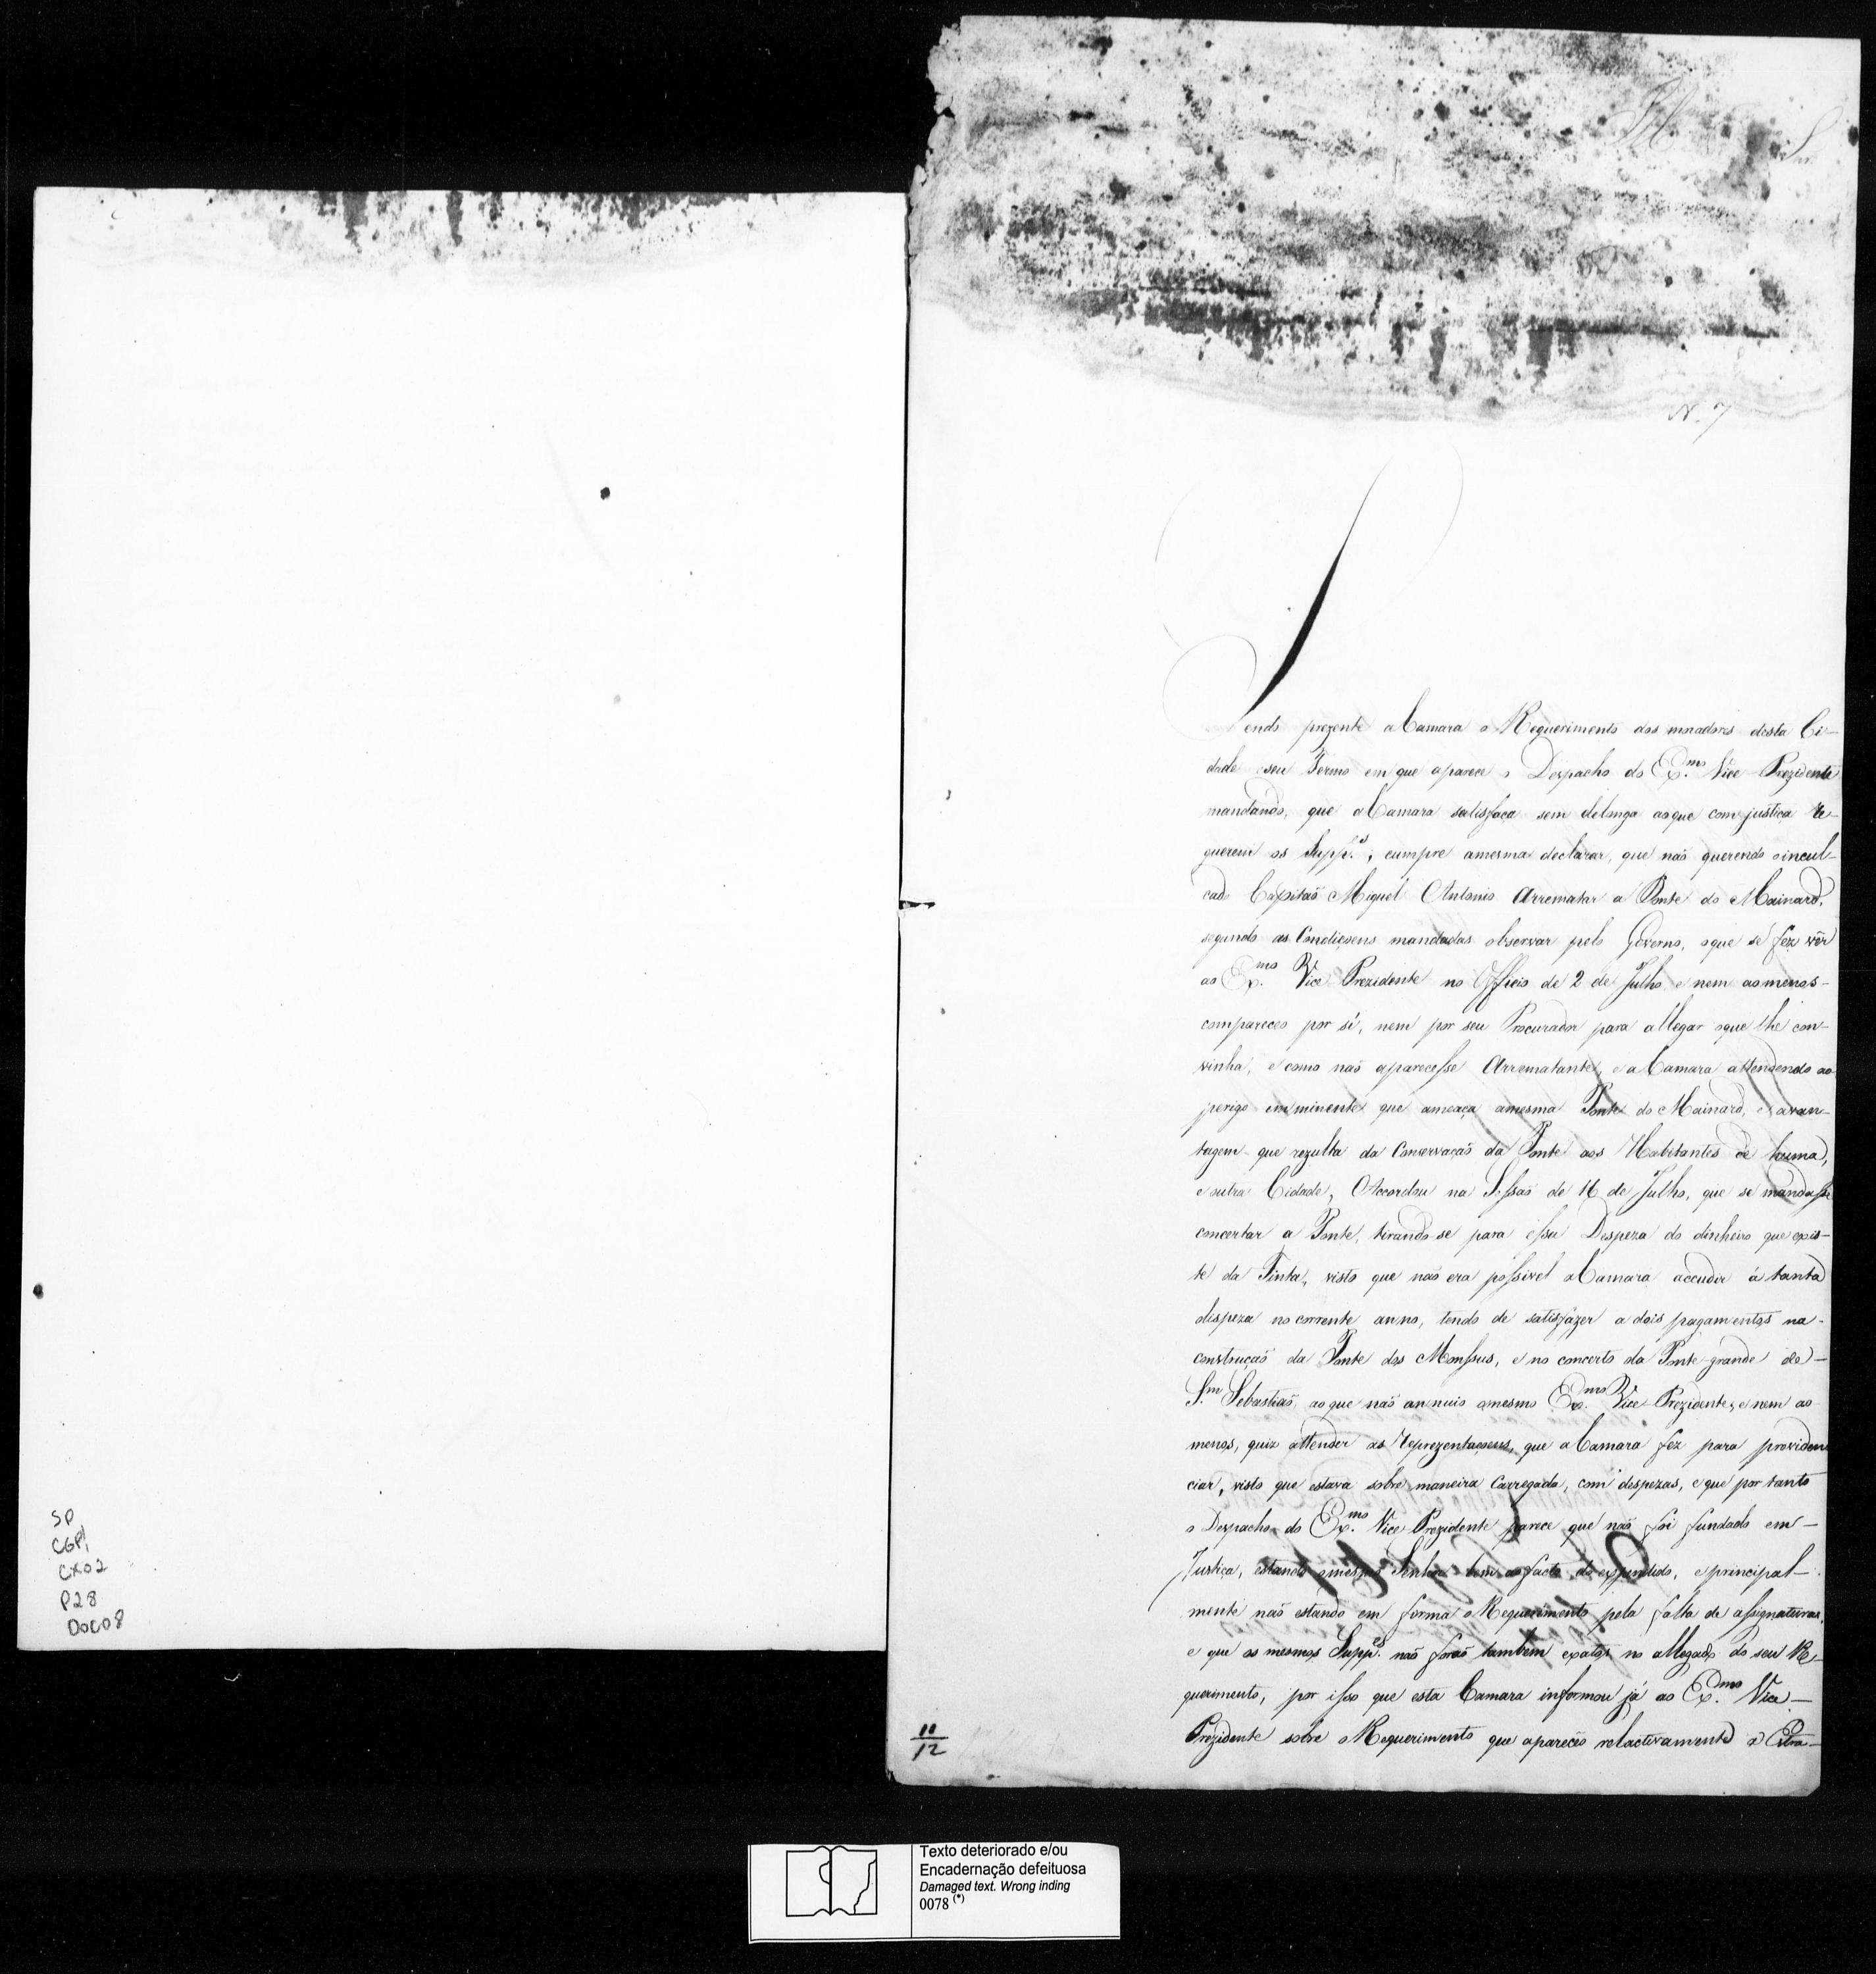 SP
CGP1
CX02
P28
DOC08
N. 7
Tendo prezente a Camara o Requerimento dos moradores desta Ci-
dade e seu Termo em que aparece o Despacho do Ex.mo Vice-Prezidente
mandando, que a Camara satisfaça sem delonga ao que com justiça re-
querem os Supp.es; cumpre a mesma declarar, que não querendo o incul-
cado Capitão Miguel Antonio Arrematar a Ponte do Mainard,
segundo as Condiçoens mandadas observar pelo Governo, o que se fez vêr
ao Ex.mo Vice Prezidente no Officio de 2 de Julho e nem ao menos-
compareceo por si, nem por seu Procurador para allegar o que lhe con-
vinha, e como não aparecesse Arrematante, e a Camara attendendo ao
perigo imminente que ameaça a mesma Ponte do Mainard, e a van-
tagem que rezulta da Conservação da Ponte aos Habitantes de huma,
e outra Cidade, Accordou na Sessão de 16 de Julho, que se mandasse
concertar a Ponte, tirando-se para essa Despeza do dinheiro que exis-
te da Finta, visto que não era possivel a Camara accudir á tanta
dispeza no corrente anno, tendo de satisfazer a dois pagamentos na-
construção da Ponte dos Monsus, e no concerto da Ponte grande de-
S.m Sebastião, ao que não annuio o mesmo Ex.mo Vice-Prezidente, e nem ao
menos, quiz attender as reprezentaçoens, que a Camara fez para providen
ciar, visto que estava sobre maneira Carregada, com despezas, e que por tanto
o Despacho do Ex.mo Vice-Prezidente parece que não foi fundado em-
Justiça, estando o mesmo Senhor bem ao facto do expendido, e principal-
mente não estando em forma o Requerimento pela falta de assignaturas,
e que os mesmos Supp.es não forão tambem exatos no allegado do seu Re-
querimento, por isso que esta Camara informou já ao Ex.mo Vice-
Prezidente sobre o Requerimento que apareceo relactivamente a Estra-
11
12
Texto deteriorado e/ou
Encadernação defeituosa
Damaged text. Wrong inding
0078 (*)